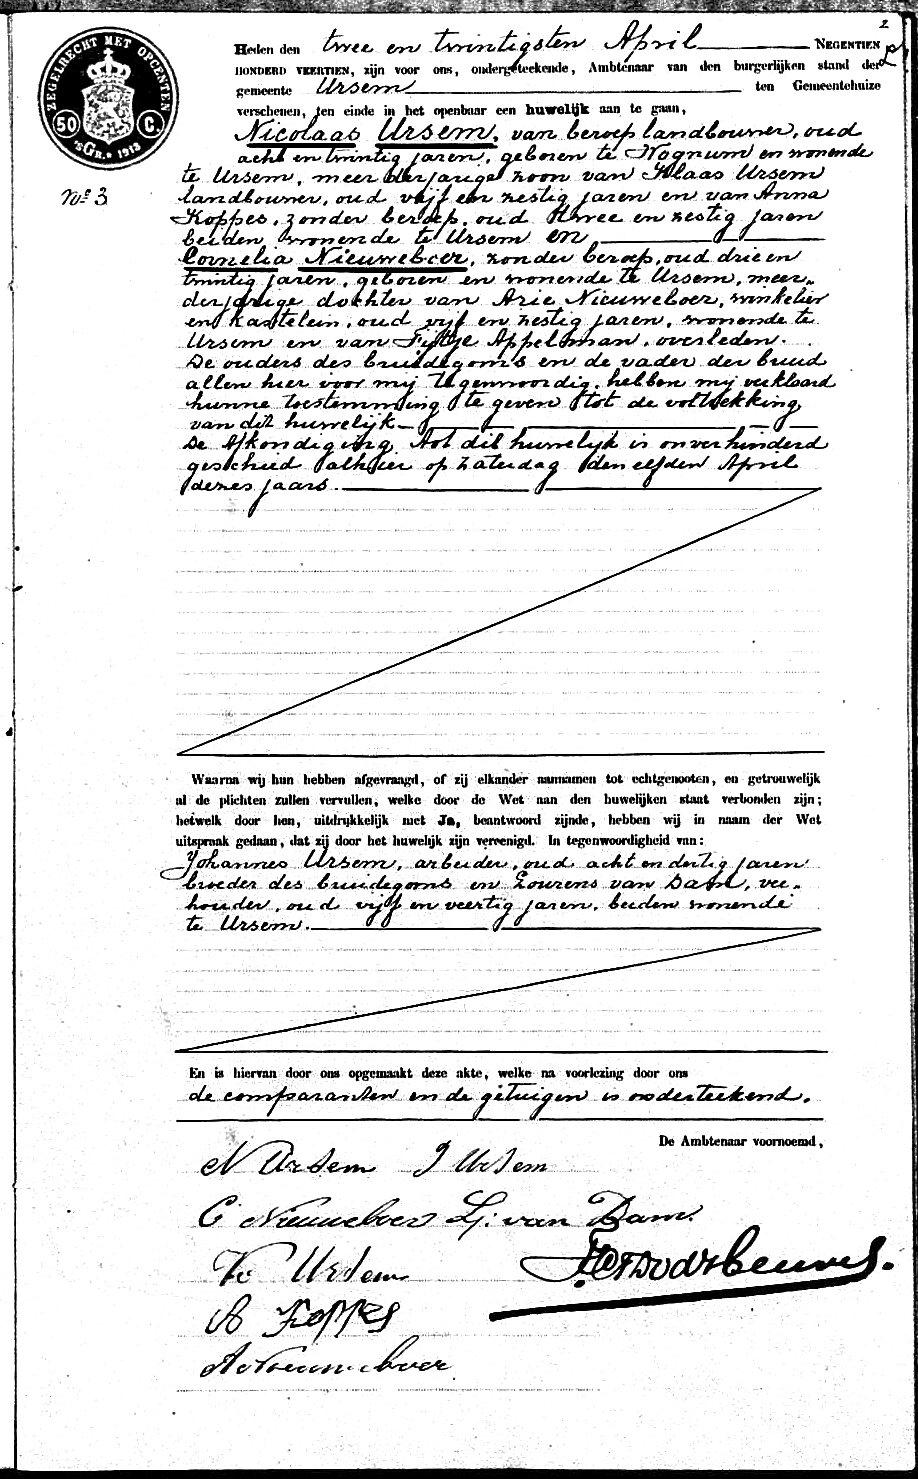 2
ZEGELRECHT MET OPCENTEN
50 C.
Gr. 1913
No 3
Heden den twee en twintigsten April NEGENTIEN
HONDERD VEERTIEN, zijn voor ons, ondergeteekende, Ambtenaar van den burgerlijken stand der
gemeente Ursem ten Gemeentehuize
verschenen, ten einde in het openbaar een huwelijk aan te gaan,
Nicolaas Ursem, van beroep landbouwer, oud
acht en twintig jaren, geboren te Wognum en wonende
te Ursem, meerderjarige zoon van Klaas Ursem
landbouwer, oud vijf en zestig jaren en van Anna
Koppes, zonder beroep, oud twee en zestig jaren
beiden wonende te Ursem en
Cornelia Nieuweboer, zonder beroep, oud drie en
twintig jaren, geboren en wonende te Ursem, meer-
derjarige dochter van Arie Nieuweboer, winkelier
en kastelein, oud vijf en zestig jaren, wonende te
Ursem en van Fijtje Appelman, overleden.
De ouders des bruidegoms en de vader der bruid
allen hier voor mij tegenwoordig, hebben mij verklaard
hunne toestemming te geven tot de voltrekking
van dit huwelijk
De Afkondiging tot dit huwelijk is onverhinderd
geschied alhier op Zaterdag den elfden April
dezes jaars.
Waarna wij hun hebben afgevraagd, of zij elkander aannamen tot echtgenooten, en getrouwelijk
al de plichten zullen vervullen, welke door de Wet aan den huwelijken staat verbonden zijn;
hetwelk door hen, uitdrukkelijk met Ja, beantwoord zijnde, hebben wij in naam der Wet
uitspraak gedaan, dat zij door het huwelijk zijn vereenigd. In tegenwoordigheid van:
Johannes Ursem, arbeider, oud acht en dertig jaren
broeder des bruidegoms en Lourens van Dam, vee-
houder, oud vijf en veertig jaren, beiden wonende
te Ursem.
En is hiervan door ons opgemaakt deze akte, welke na voorlezing door ons
de comparanten en de getuigen is onderteekend.
De Ambtenaar voornoemd,
N Ursem J Ursem
C Nieuweboer L: van Dam.
K Ursem
A Koppes
A Nieuweboer